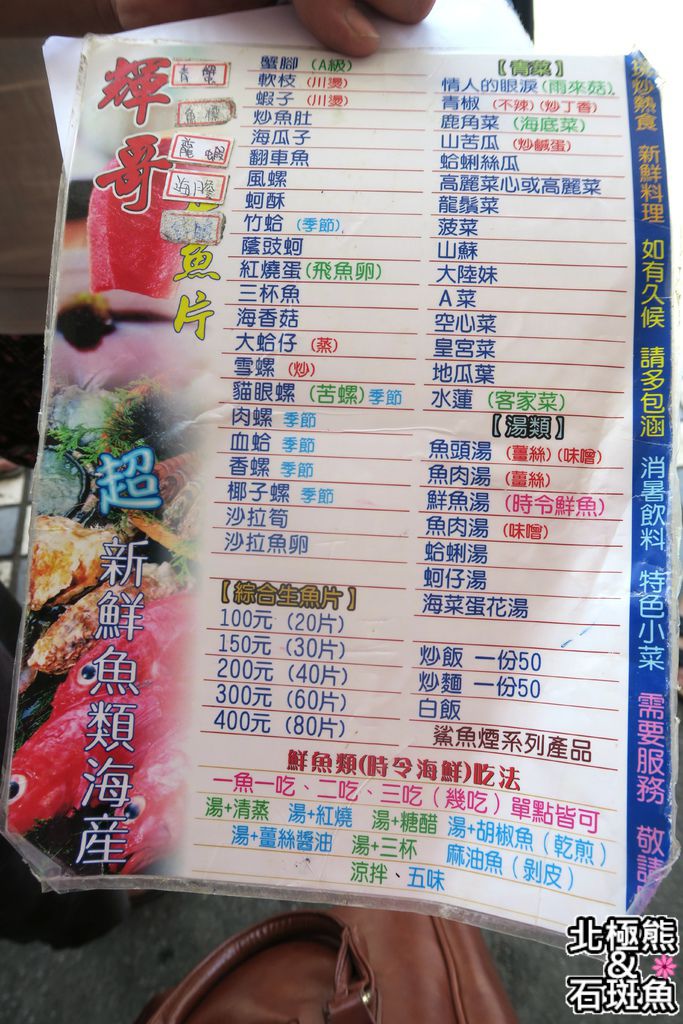 輝哥
生魚片
超新鮮魚類海産
青蟹
龍蝦
海膽
蟹腳 (A級)
軟枝 (川燙)
蝦子 (川燙)
炒魚肚
海瓜子
翻車魚
風螺
蚵酥
竹蛤 (季節)
蔭豉蚵
紅燒蛋 (飛魚卵)
三杯魚
海香菇
大蛤仔 (蒸)
雪螺 (炒)
貓眼螺 (苦螺) 季節
肉螺 季節
血蛤 季節
香螺 季節
椰子螺 季節
沙拉筍
沙拉魚卵
【綜合生魚片】
100元 (20片)
150元 (30片)
200元 (40片)
300元 (60片)
400元 (80片)
【青菜】
情人的眼淚 (雨來菇)
青椒 (不辣) (炒丁香)
鹿角菜 (海底菜)
山苦瓜 (炒鹹蛋)
蛤蜊絲瓜
高麗菜心或高麗菜
龍鬚菜
菠菜
山蘇
大陸妹
A菜
空心菜
皇宮菜
地瓜葉
水蓮 (客家菜)
【湯類】
魚頭湯 (薑絲) (味噌)
魚肉湯 (薑絲)
鮮魚湯 (時令鮮魚)
魚肉湯 (味噌)
蛤蜊湯
蚵仔湯
海菜蛋花湯
炒飯 一份50
炒麵 一份50
白飯
鯊魚煙系列產品
鮮魚類(時令海鮮)吃法
一魚一吃、二吃、三吃(幾吃)單點皆可
湯+清蒸 湯+紅燒 湯+糖醋 湯+胡椒魚(乾煎)
湯+薑絲醬油 湯+三杯 麻油魚(剝皮)
涼拌、五味
炒熱食 新鮮料理 如有久候 請多包涵 消暑飲料 特色小菜 需要服務 敬請
北極熊
&
石斑魚